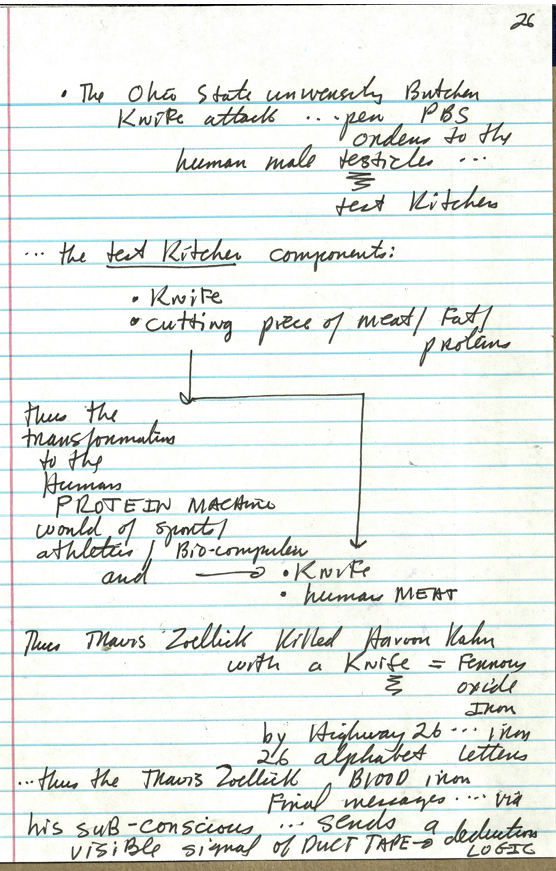 26
• The Ohio State university Butcher
Knife attack ... pen PBS
orders to the
human male testicles ...
test Kitchen
... the test Kitchen components:
• Knife
• cutting piece of meat / Fat /
proteins
thus the
transformation
to the
Human
PROTEIN MACHINE
world of sports /
athletics / Bio-computer
and → • Knife
• human MEAT
Thus Travis Zoellick Killed Haroon Kahn
with a Knife = Ferrous
oxide
Iron
by Highway 26 ... iron
26 alphabet letters
... thus the Travis Zoellick Blood iron
Final messages ... via
his sub-conscious ... sends a
visible signal of DUCT TAPE → deduction
LOGIC